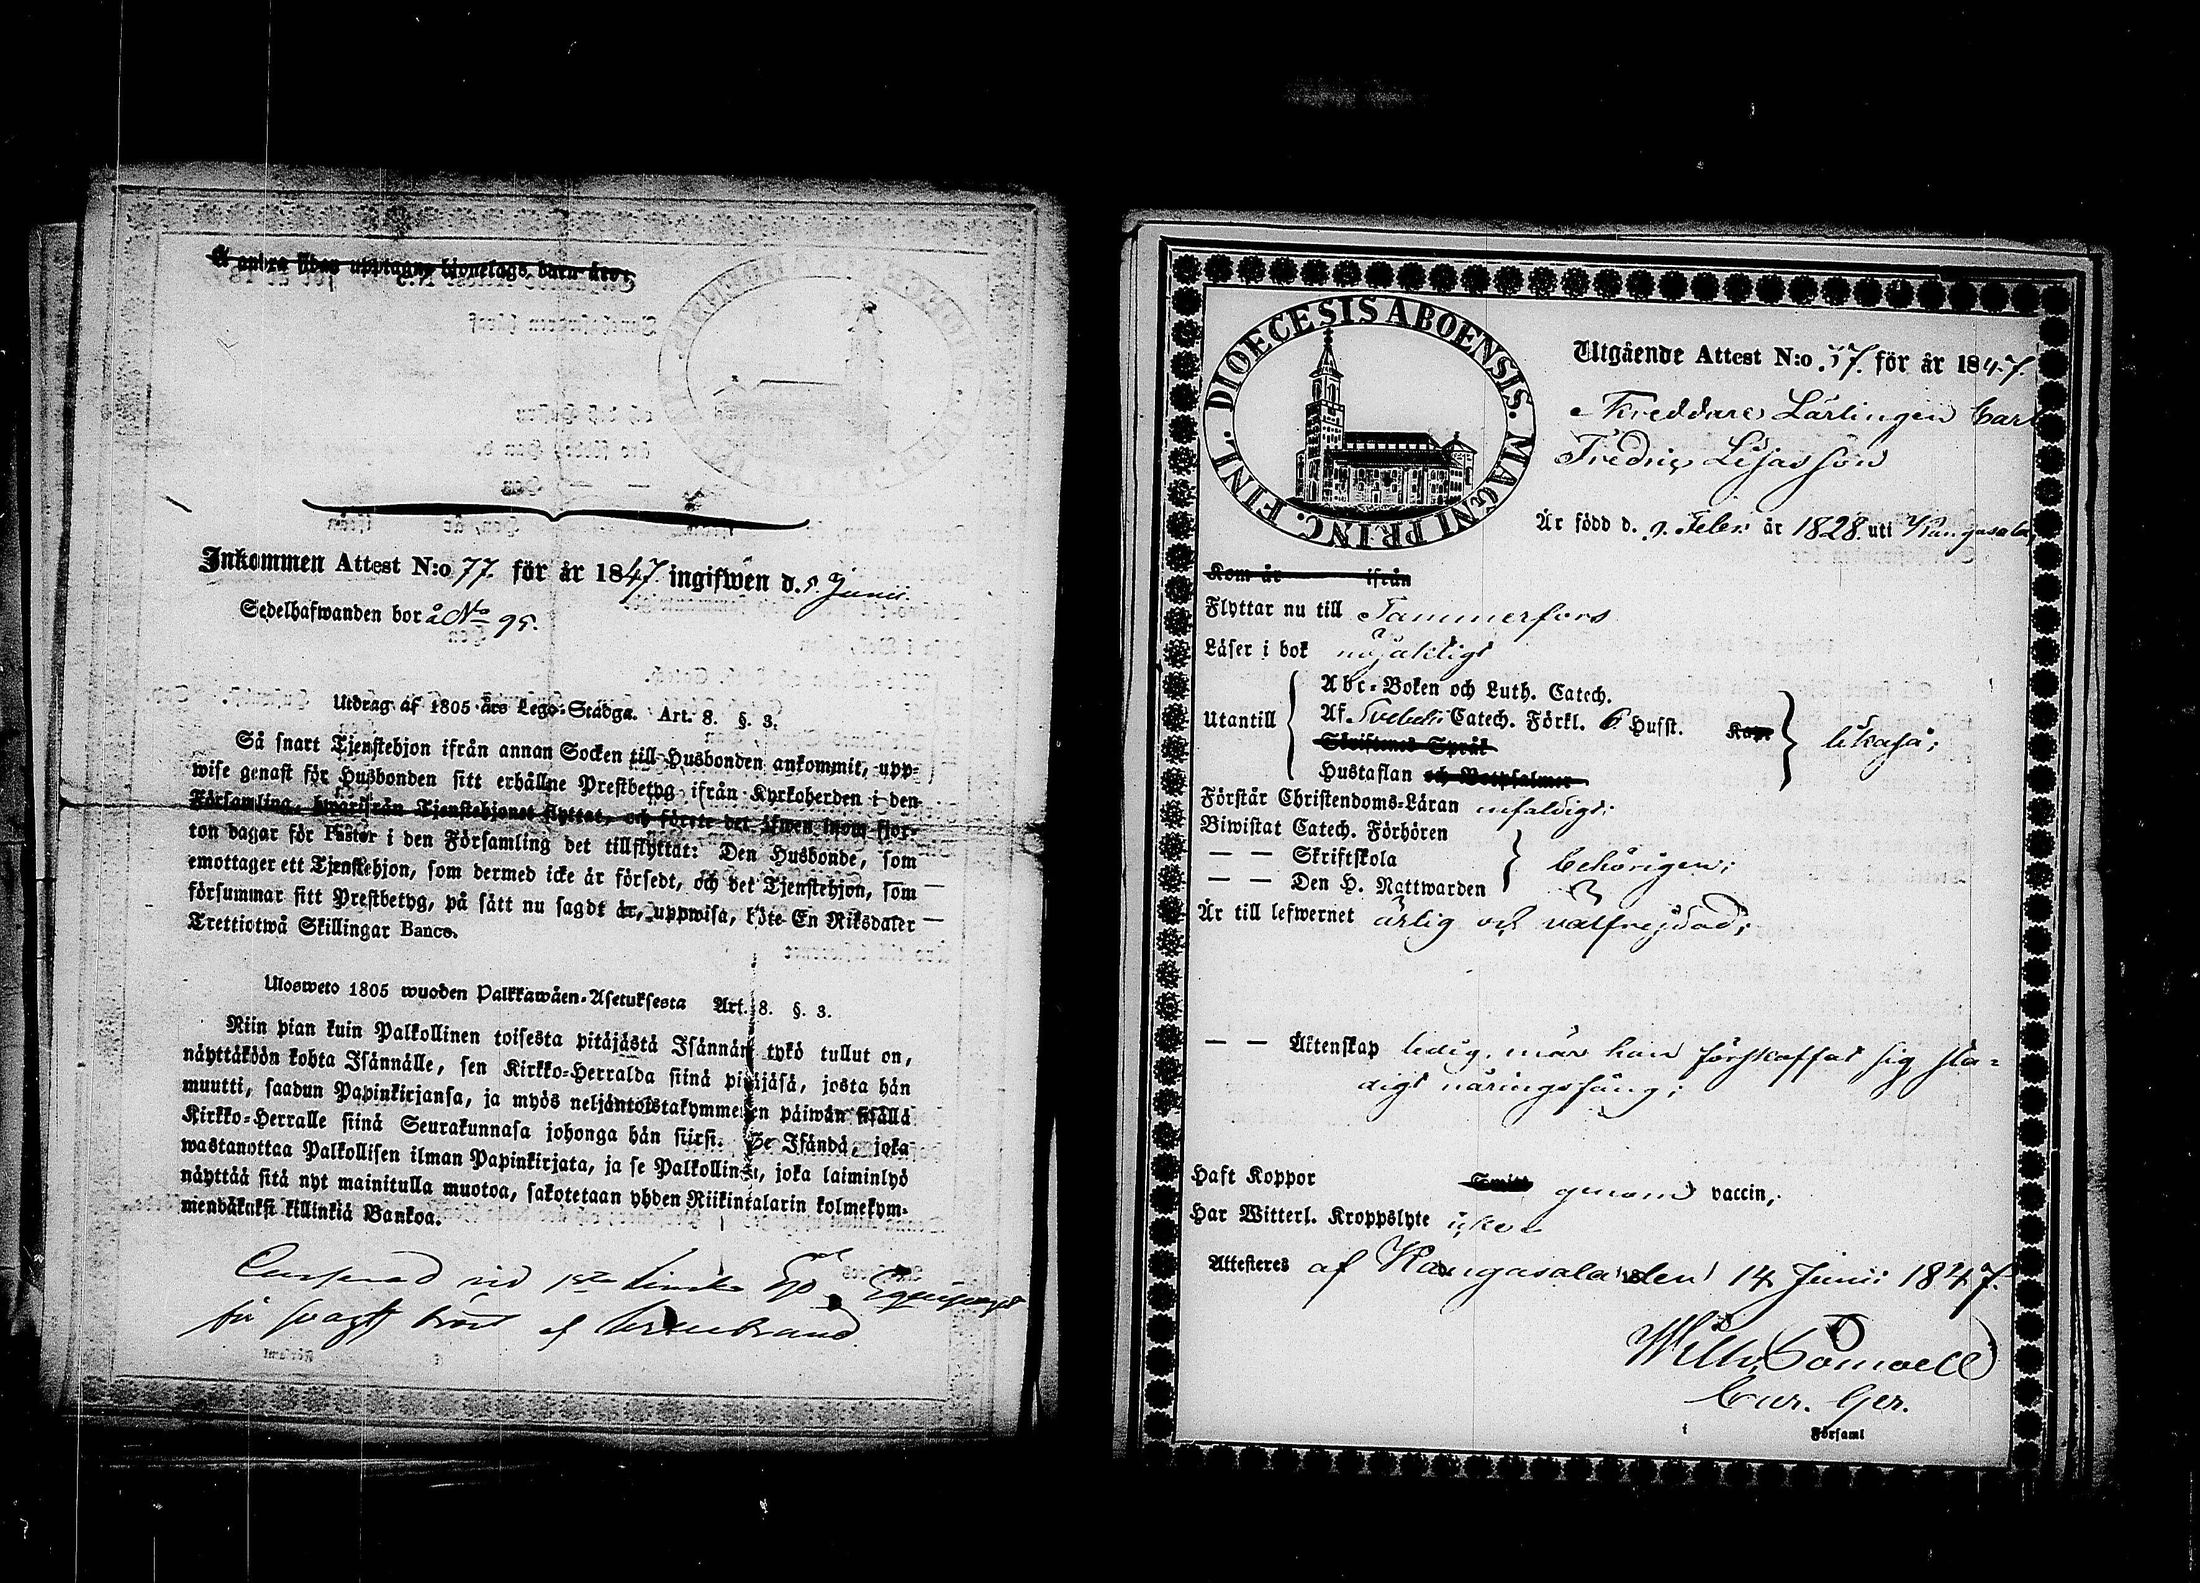 Inkommen Attest N:o 77. för år 1847. ingifwen d. 5. Junii.
Sedelhafwanden bor å No 95.
Utdrag af 1805 års Lego-Stadga. Art. 8. §. 3.
Så snart Tjenstehjon ifrån annan Socken till Husbonden ankommit, upp-
wise genast för Husbonden sitt erhållne Prestbetyg ifrån Kyrkoherden i den
Församling, hwarifrån Tjenstehjonet flyttat, och förete det äfwen inom fjor-
ton dagar för Pastor i den Församling det tillflyttat: Den Husbonde, som
emottager ett Tjenstehjon, som dermed icke är försedt, och det Tjenstehjon, som
försummar sitt Prestbetyg, på sätt nu sagdt är, uppwisa, böte En Riksdaler
Trettiotwå Skillingar Banco.
Ulosweto 1805 wuoden Palkkawäen-Asetuksesta Art. 8. §. 3.
Niin pian kuin Palkollinen toisesta pitäjästä Isännän tykö tullut on,
näyttäköön kohta Isännälle, sen Kirkko-Herralda siinä pitäjäsä, josta hän
muutti, saadun Papinkirjansa, ja myös neljäntoistakymmenen päiwän sisällä
Kirkko-Herralle siinä Seurakunnasa johonga hän siirsi. Se Isändä, joka
wastanottaa Palkollisen ilman Papinkirjata, ja se Palkollinen, joka laiminlyö
näyttää sitä nyt mainitulla muotoa, sakotetaan yhden Riikintalarin kolmekym-
mendäkaksi killinkiä Bankoa.
Casserad vid 1sta Finska
för svagt bröst af
DIOECESIS ABOENSIS. MAGNI PRINC. FINL.
Utgående Attest N:o 57. för år 1847.
Skreddare Lärlingen Carl
Fredric Lisasson
Är född d. 9. Febr: år 1828. uti Kangasala
Kom år ifrån
Flyttar nu till Tammerfors
Läser i bok nöjaktigt
Utantill
Abc-Boken och Luth. Catech.
Af Svebelii Catech. Förkl. 6 Hufst. Kap:
Skriftenes Språk
Hustaflan och Botpsalmer
likaså;
Förstår Christendoms-Läran enfaldigt:
Biwistat Catech. Förhören
— — Skriftskola
— — Den H. Nattwarden
behörigen;
Är till lefwernet ärlig och välfrejdad;
— — Äktenskap ledig, när han förskaffat sig sta-
digt näringsfång;
Haft Koppor genom vaccin;
Har Witterl. Kroppslyte icke
Attesteres af Kangasala den 14 Junii 1847.
Wilh.
Cur. Ger.
i Församl